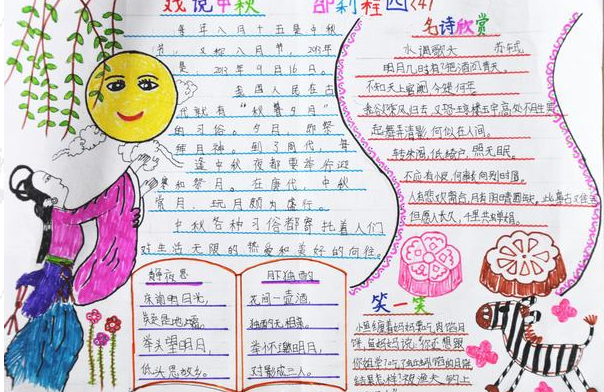 戏说中秋
名诗欣赏
每年八月十五是中秋
节,又称八月节,2013年
是 2013年9月16日。
我国人民在古
代就有“秋暮夕月”
的习俗。夕月,即祭
拜月神。到了周代,每
逢中秋夜都要举行迎
寒和祭月。在唐代,中秋
赏月、玩月颇为盛行。
中秋各种习俗都寄托着人们
对生活无限的热爱和美好的向往。
水调歌头 苏轼
明月几时有?把酒问青天。
不知天上宫阙,今夕是何年
我欲乘风归去,又恐琼楼玉宇,高处不胜寒
起舞弄清影,何似在人间。
转朱阁,低绮户,照无眠。
不应有恨,何事长向别时圆。
人有悲欢离合,月有阴晴圆缺,此事古难全
但愿人长久,千里共婵娟。
静夜思
床前明月光,
疑是地上霜。
举头望明月,
低头思故乡。
月下独酌
花间一壶酒,
独酌无相亲。
举杯邀明月,
对影成三人。
笑一笑
小鱼缠着妈妈要吃
饼,鱼妈妈说: